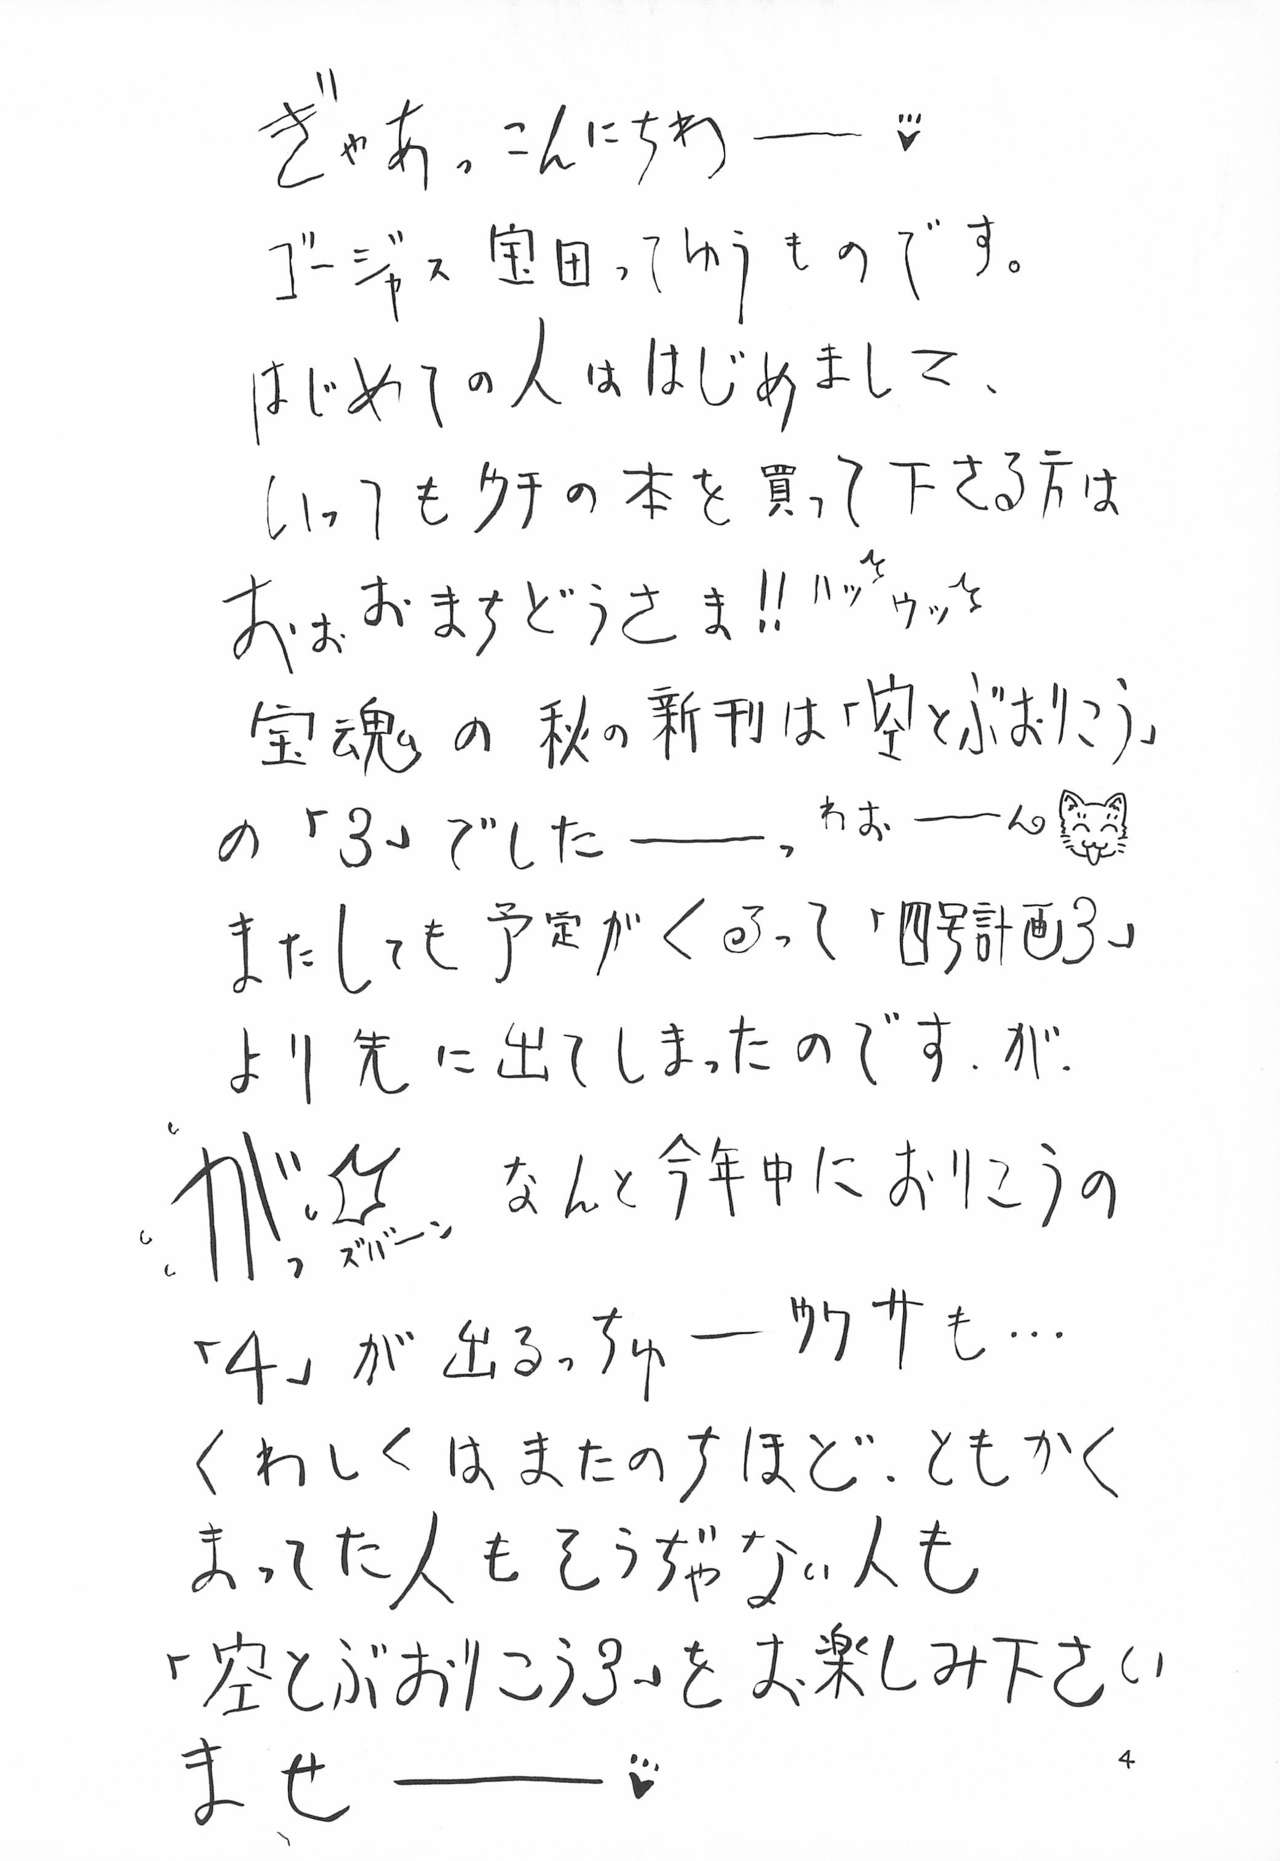 ぎゃあっこんにちわ――♥
ゴージャス宝田ってゆうものです。
はじめての人ははじめまして、
いっつもウチの本を買って下さる方は
おぉおまちどうさま!! ハッ ウッ
宝魂の秋の新刊は「空とぶおりこう」
の「3」でした――っ わお――ん
またしても予定がくるって「四号計画3」
より先に出てしまったのです.が.
がっ ズバーン なんと今年中におりこうの
「4」が出るっちゅーウワサも…
くわしくはまたのちほど.ともかく
まってた人もそうぢゃない人も
「空とぶおりこう3」をお楽しみ下さい
ませ――♥
4